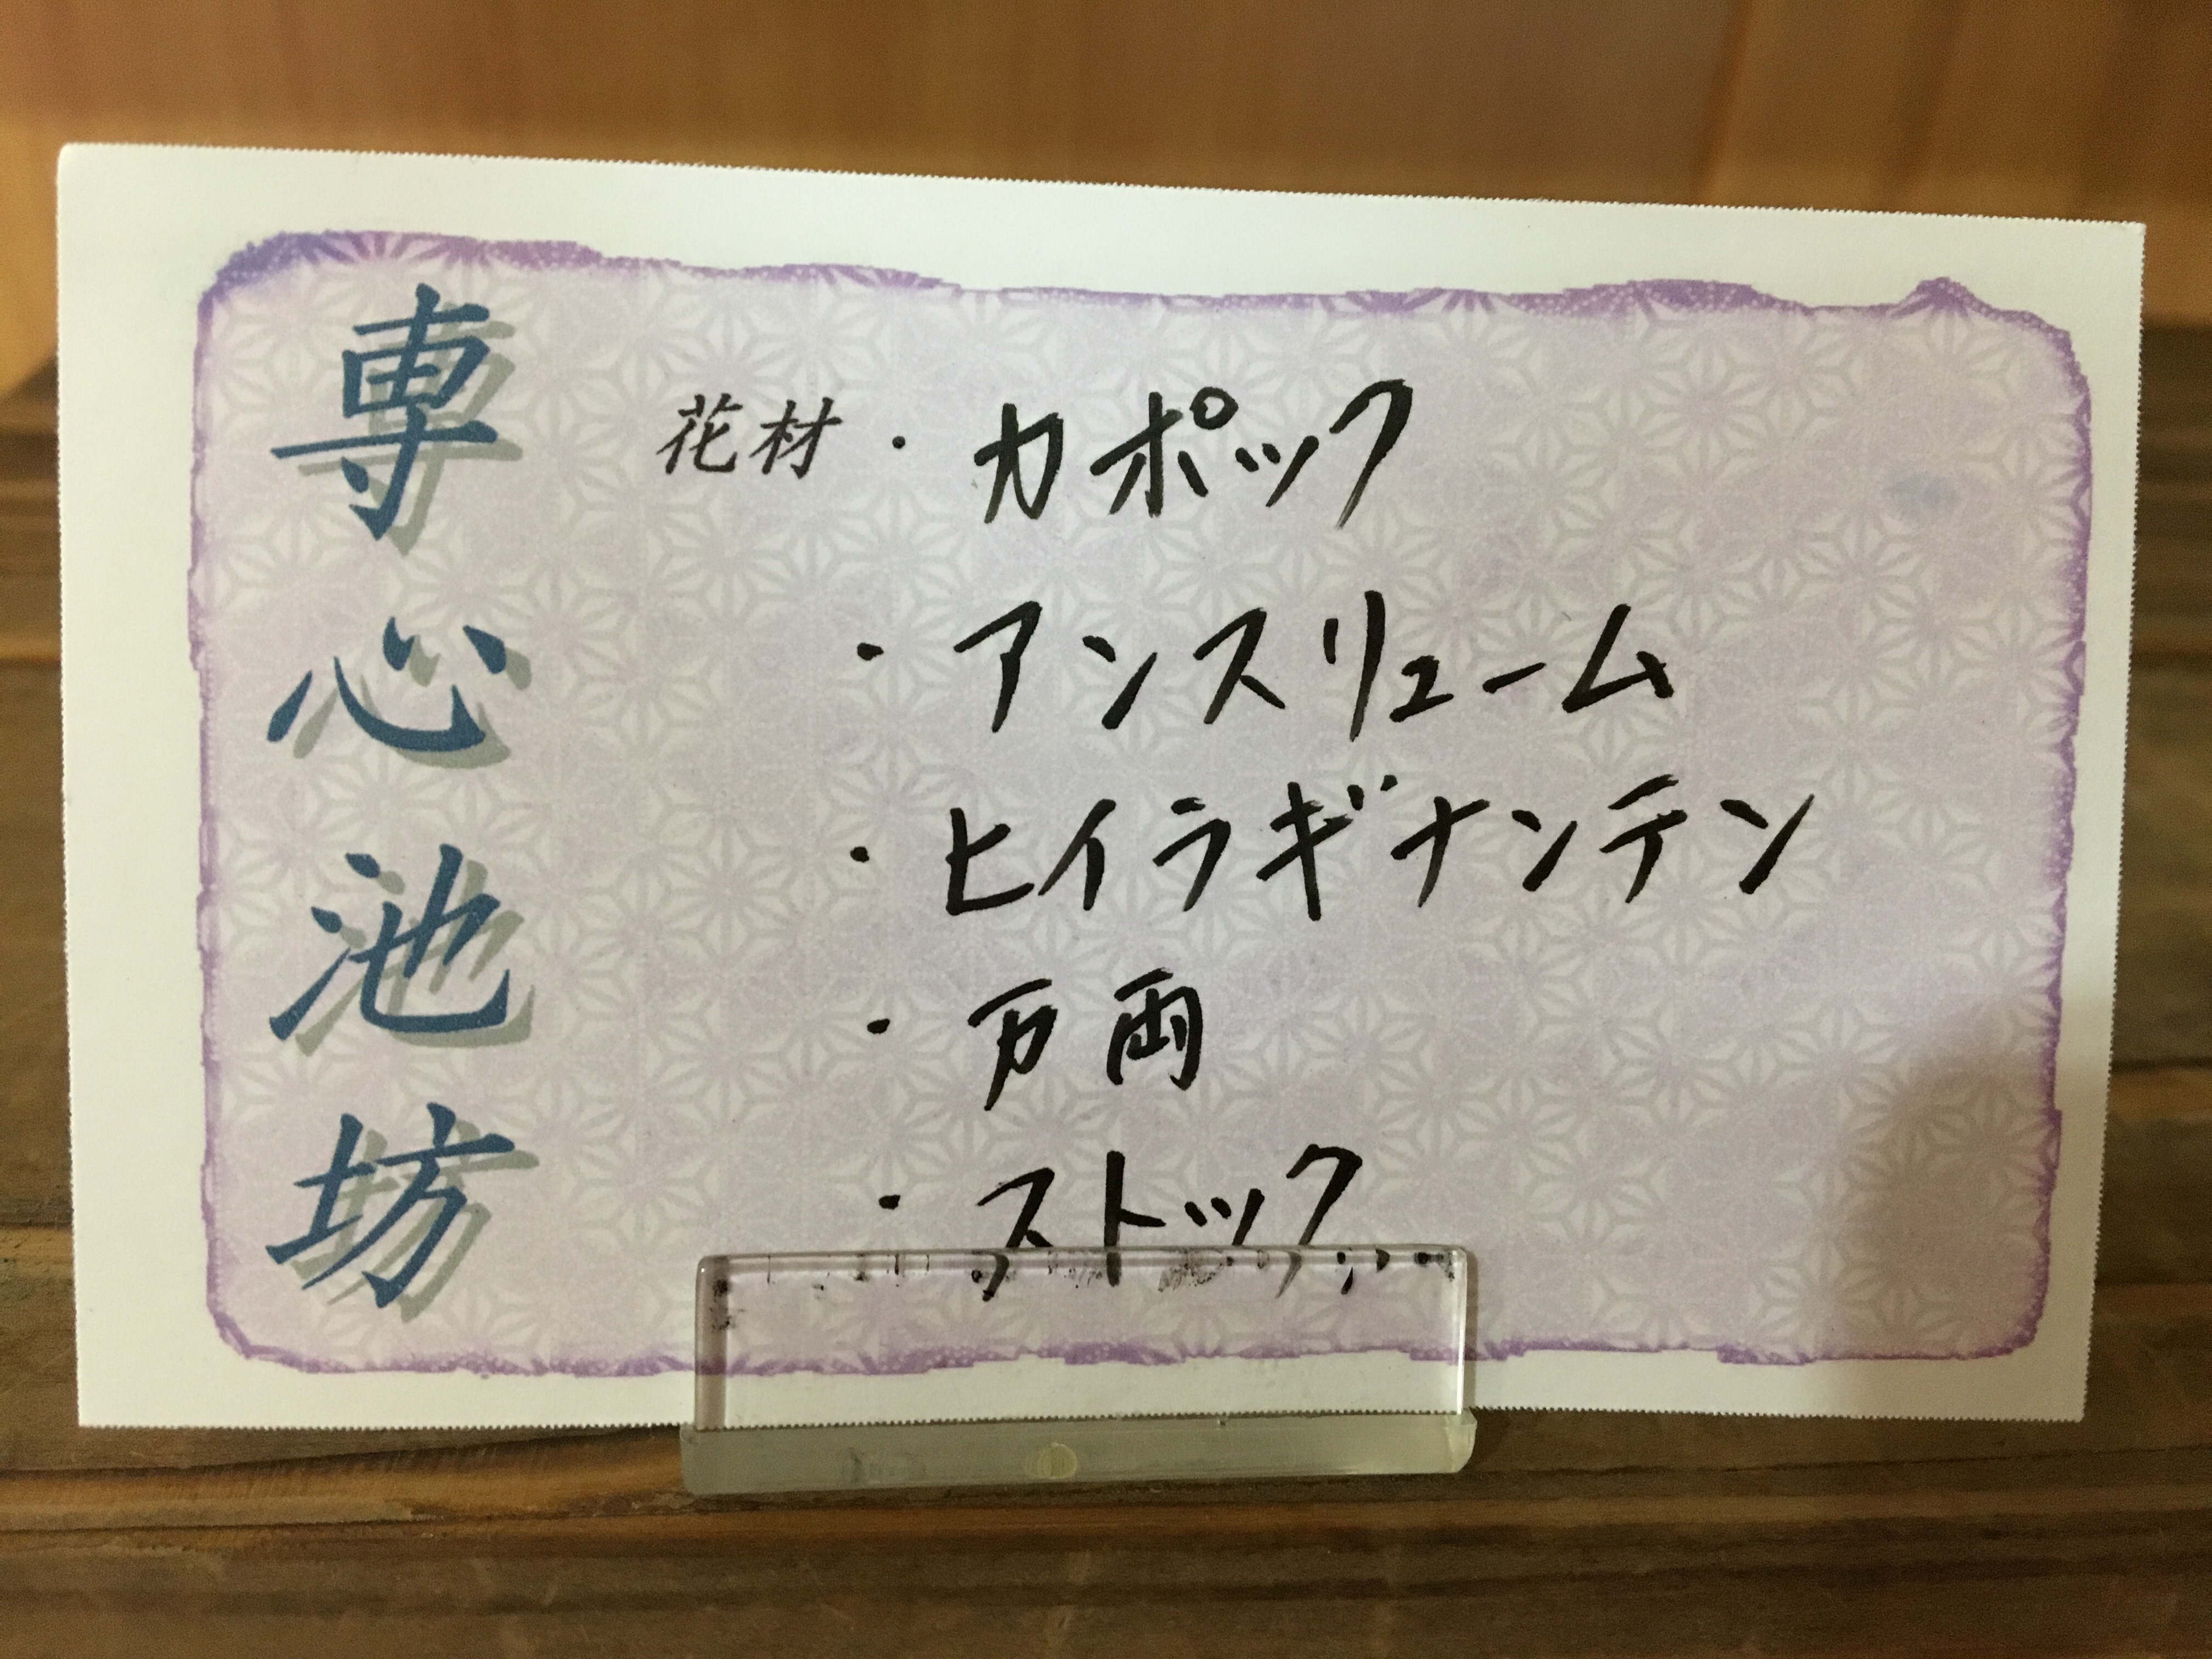 専心池坊
花材・カポック
・アンスリューム
・ヒイラギナンテン
・万両
・ストック